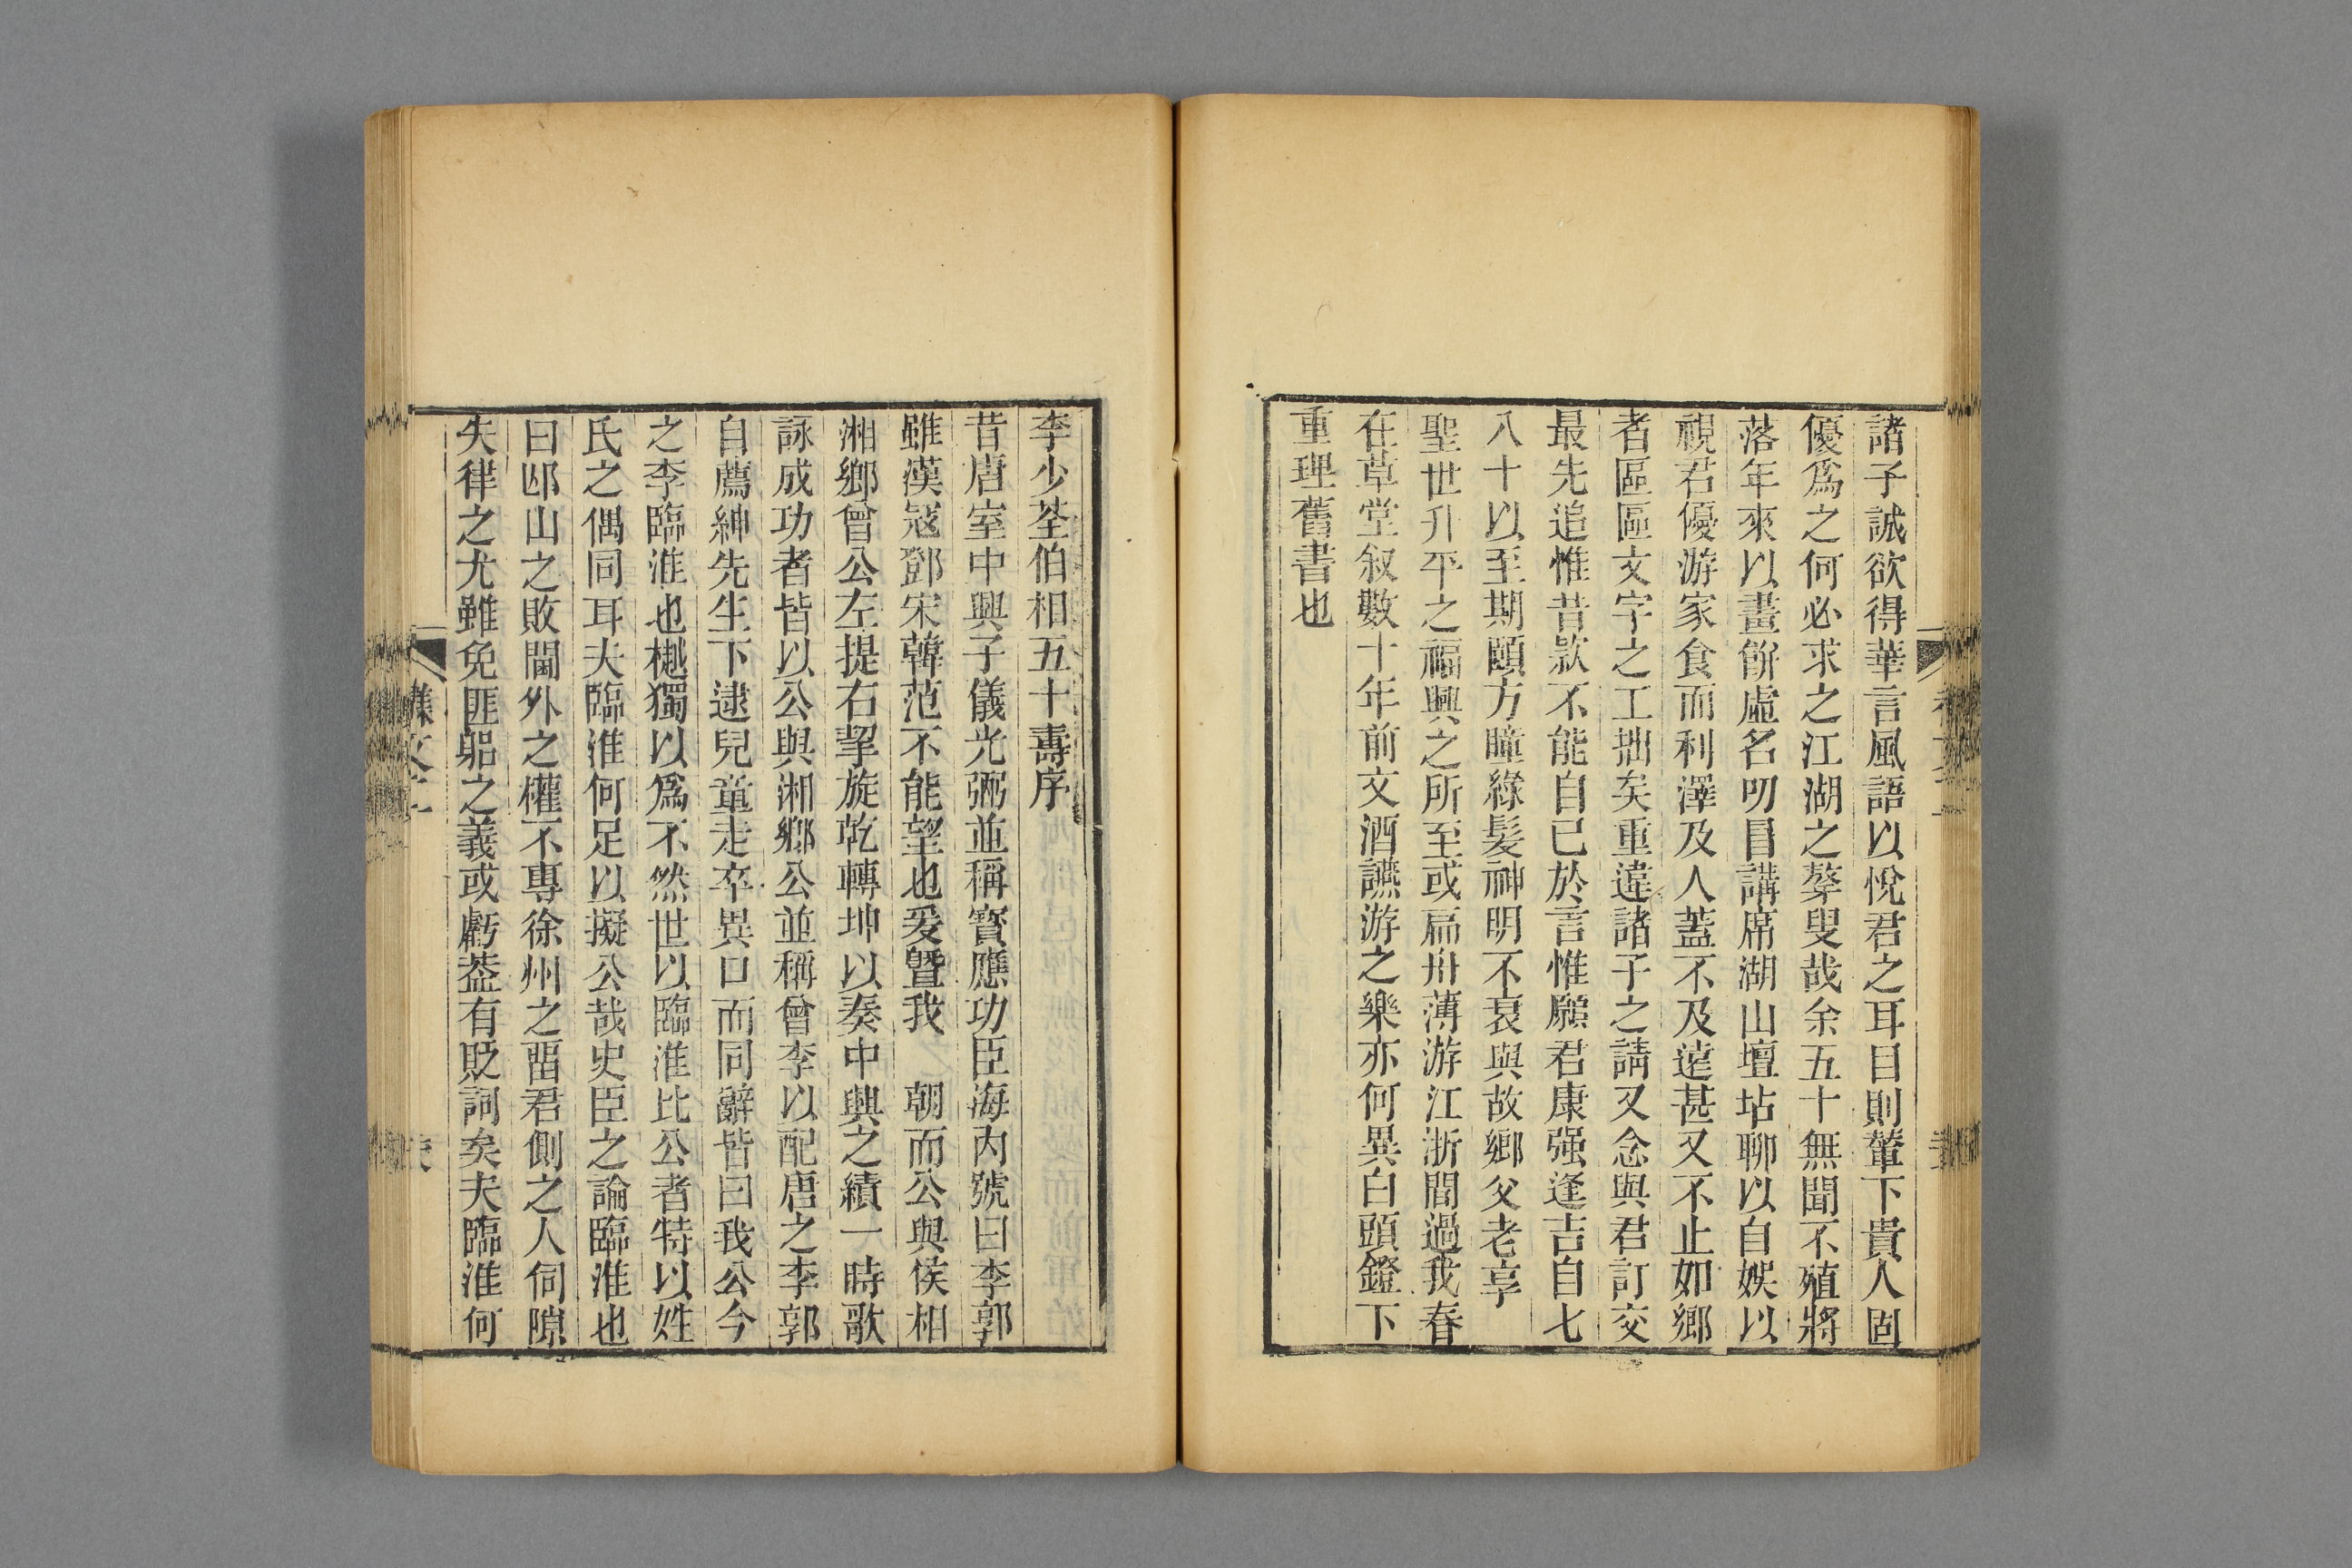 諸子誠欲得華言風語以悅君之耳目則輦下貴人固
優爲之何必求之江湖之嫠叟哉余五十無聞不殖將
落年來以畫餠虛名叨冒講席湖山壇坫聊以自娛以
視君優游家食而利澤及人蓋不及遠甚又不止如鄉
者區區文字之工拙矣重違諸子之請又念與君訂交
最先追惟昔款不能自已於言惟願君康强逢吉自七
八十以至期頤方瞳綠髪神明不衰與故鄉父老享
聖世升平之福興之所至或扁舟薄游江浙間過我春
在草堂叙數十年前文酒讌游之樂亦何異白頭鐙下
重理舊書也
李少荃伯相五十壽序
昔唐室中興子儀光弼並稱寶應功臣海內號曰李郭
雖漢寇鄧宋韓范不能望也爰曁我 朝而公與侯相
湘鄉曾公左提右挈旋乾轉坤以奏中興之績一時歌
詠成功者皆以公與湘鄉公並稱曾李以配唐之李郭
自薦紳先生下逮兒童走卒異口而同辭皆曰我公今
之李臨淮也樾獨以爲不然世以臨淮比公者特以姓
氏之偶同耳夫臨淮何足以擬公哉史臣之論臨淮也
曰邙山之敗閫外之權不專徐州之畱君側之人伺隙
失律之尤雖免匪躬之義或虧葢有貶詞矣夫臨淮何